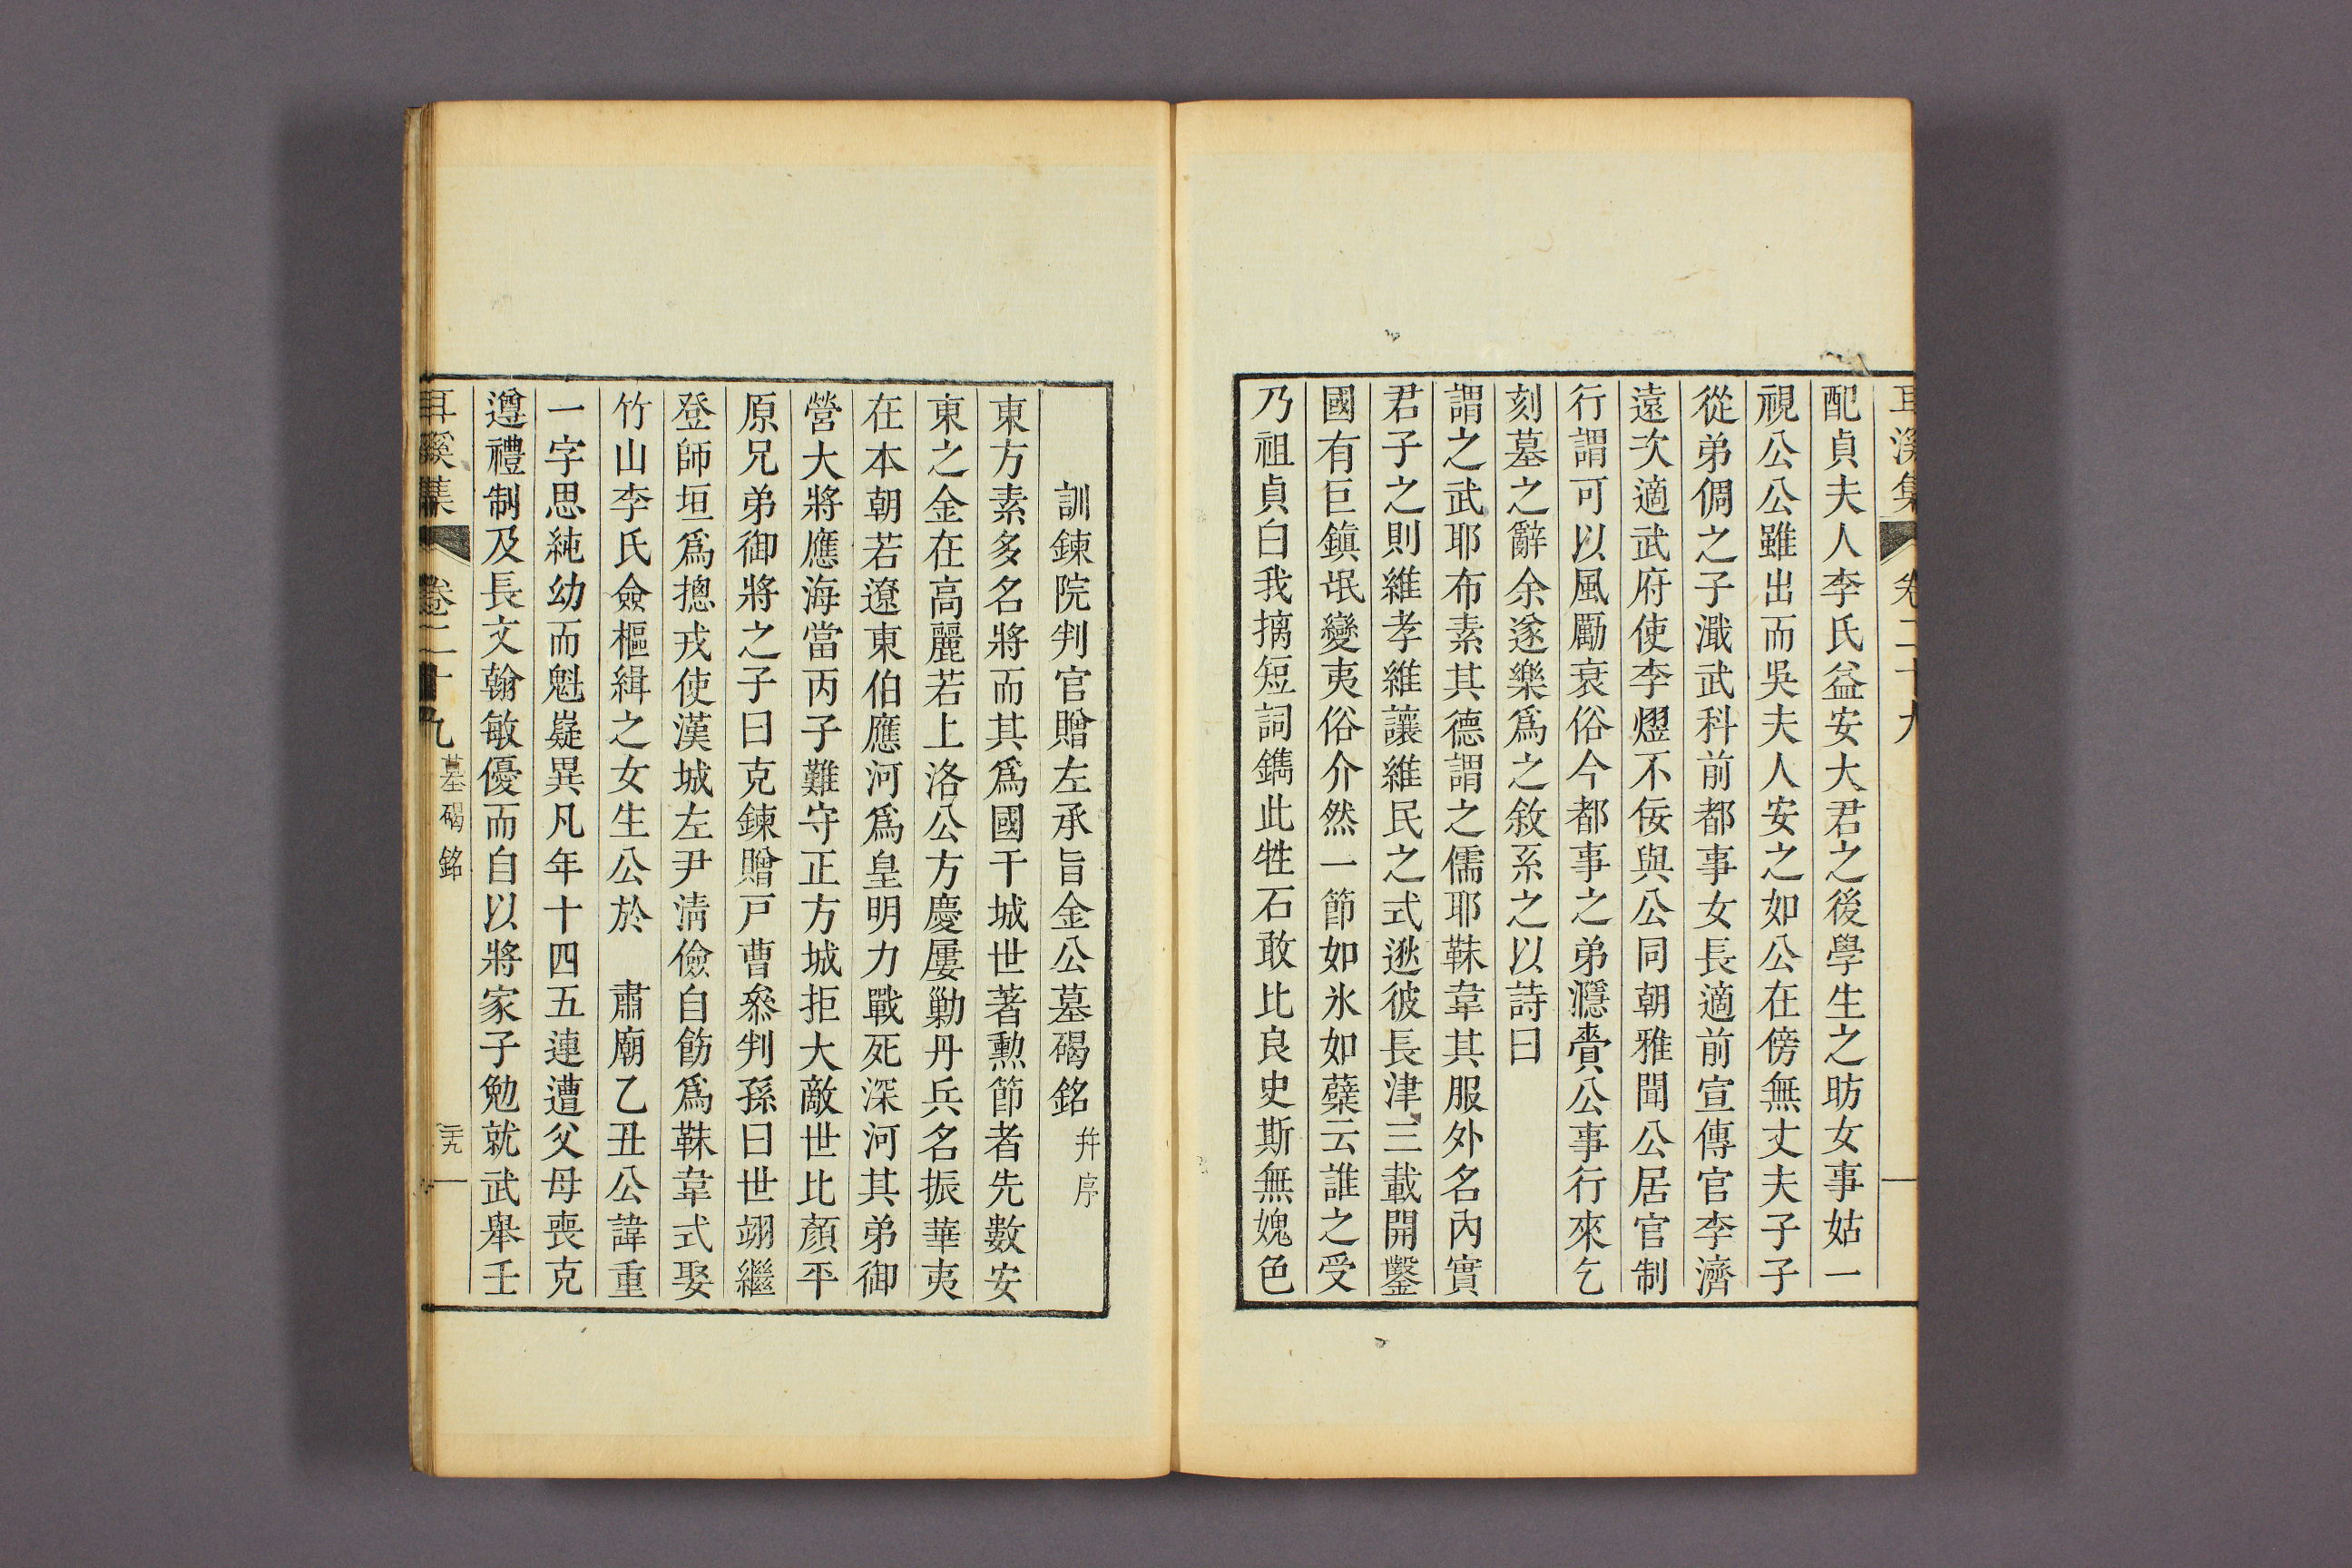 耳溪集 卷二十九
配貞夫人李氏益安大君之後學生之昉女事姑一
視公公雖出而吳夫人安之如公在傍無丈夫子子
從弟倜之子濈武科前都事女長適前宣傳官李濟
遠次適武府使李熤不佞與公同朝雅聞公居官制
行謂可以風勵衰俗今都事之弟濦賫公事行來乞
刻墓之辭余遂樂爲之敘系之以詩曰
謂之武耶布素其德謂之儒耶韎韋其服外名內實
君子之則維孝維讓維民之式逖彼長津三載開鑿
國有巨鎭氓變夷俗介然一節如氷如蘗云誰之受
乃祖貞白我摛短詞鐫此牲石敢比良史斯無媿色
訓鍊院判官贈左承旨金公墓碣銘 幷序
東方素多名將而其爲國干城世著勲節者先數安
東之金在高麗若上洛公方慶屢勦丹兵名振華夷
在本朝若遼東伯應河爲皇明力戰死深河其弟御
營大將應海當丙子難守正方城拒大敵世比顏平
原兄弟御將之子曰克鍊贈戸曹叅判孫曰世翊繼
登師垣爲摠戎使漢城左尹淸儉自飭爲韎韋式娶
竹山李氏僉樞緝之女生公於 肅廟乙丑公諱重
一字思純幼而魁嶷異凡年十四五連遭父母喪克
遵禮制及長文翰敏優而自以將家子勉就武舉壬
耳溪集 卷二十九 墓碣銘 三九